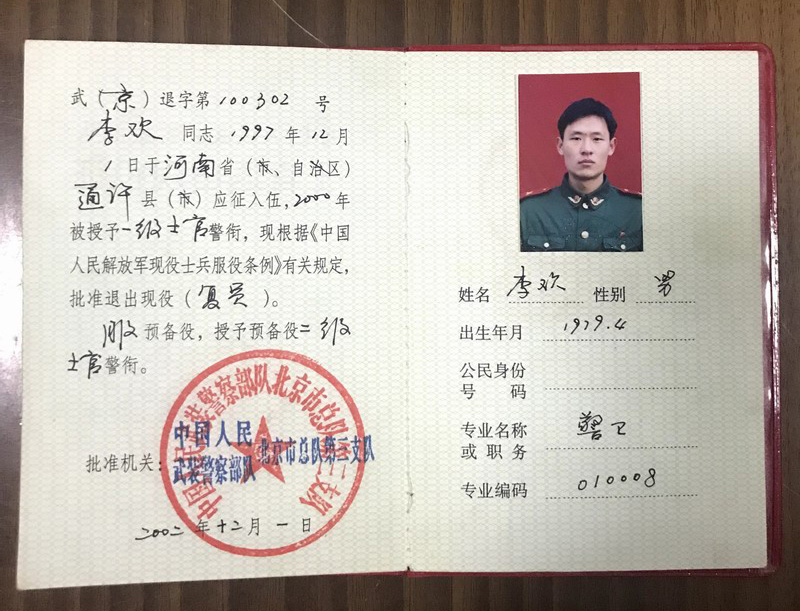 武（京）退字第100302 号
李欢 同志 1997 年 12 月
1 日于河南省（市、自治区）
通许县（市）应征入伍，2000年
被授予一级士官警衔，现根据《中国
人民解放军现役士兵服役条例》有关规定，
批准退出现役（复员）。
服预备役，授予预备役二级
士官警衔。
中国人民武装警察部队北京市总队第三支队
中国人民
武装警察部队
北京市总队第三支队
批准机关：
二00二年十二月一日
姓名 李欢 性别 男
出生年月 1979.4
公民身份
号 码
专业名称 警卫
或 职 务
专业编码 010008